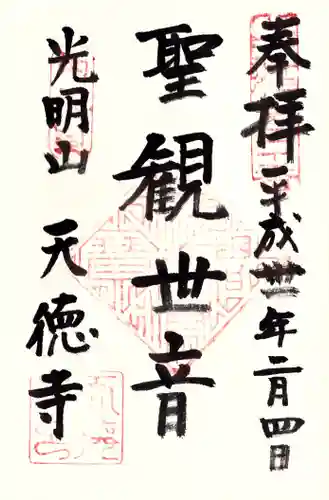 奉拝 平成卅一年二月四日
聖観世音
光明山 天徳寺